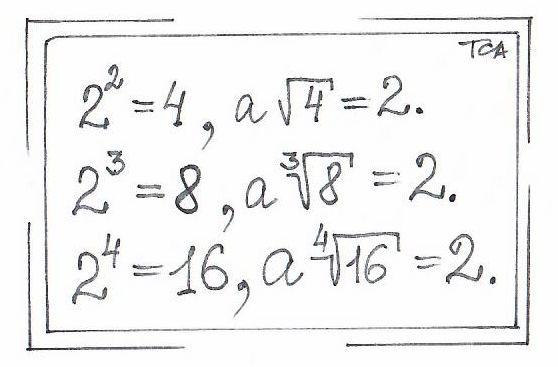 TCA
2² = 4, а √4 = 2.
2³ = 8, а ³√8 = 2.
2⁴ = 16, а ⁴√16 = 2.